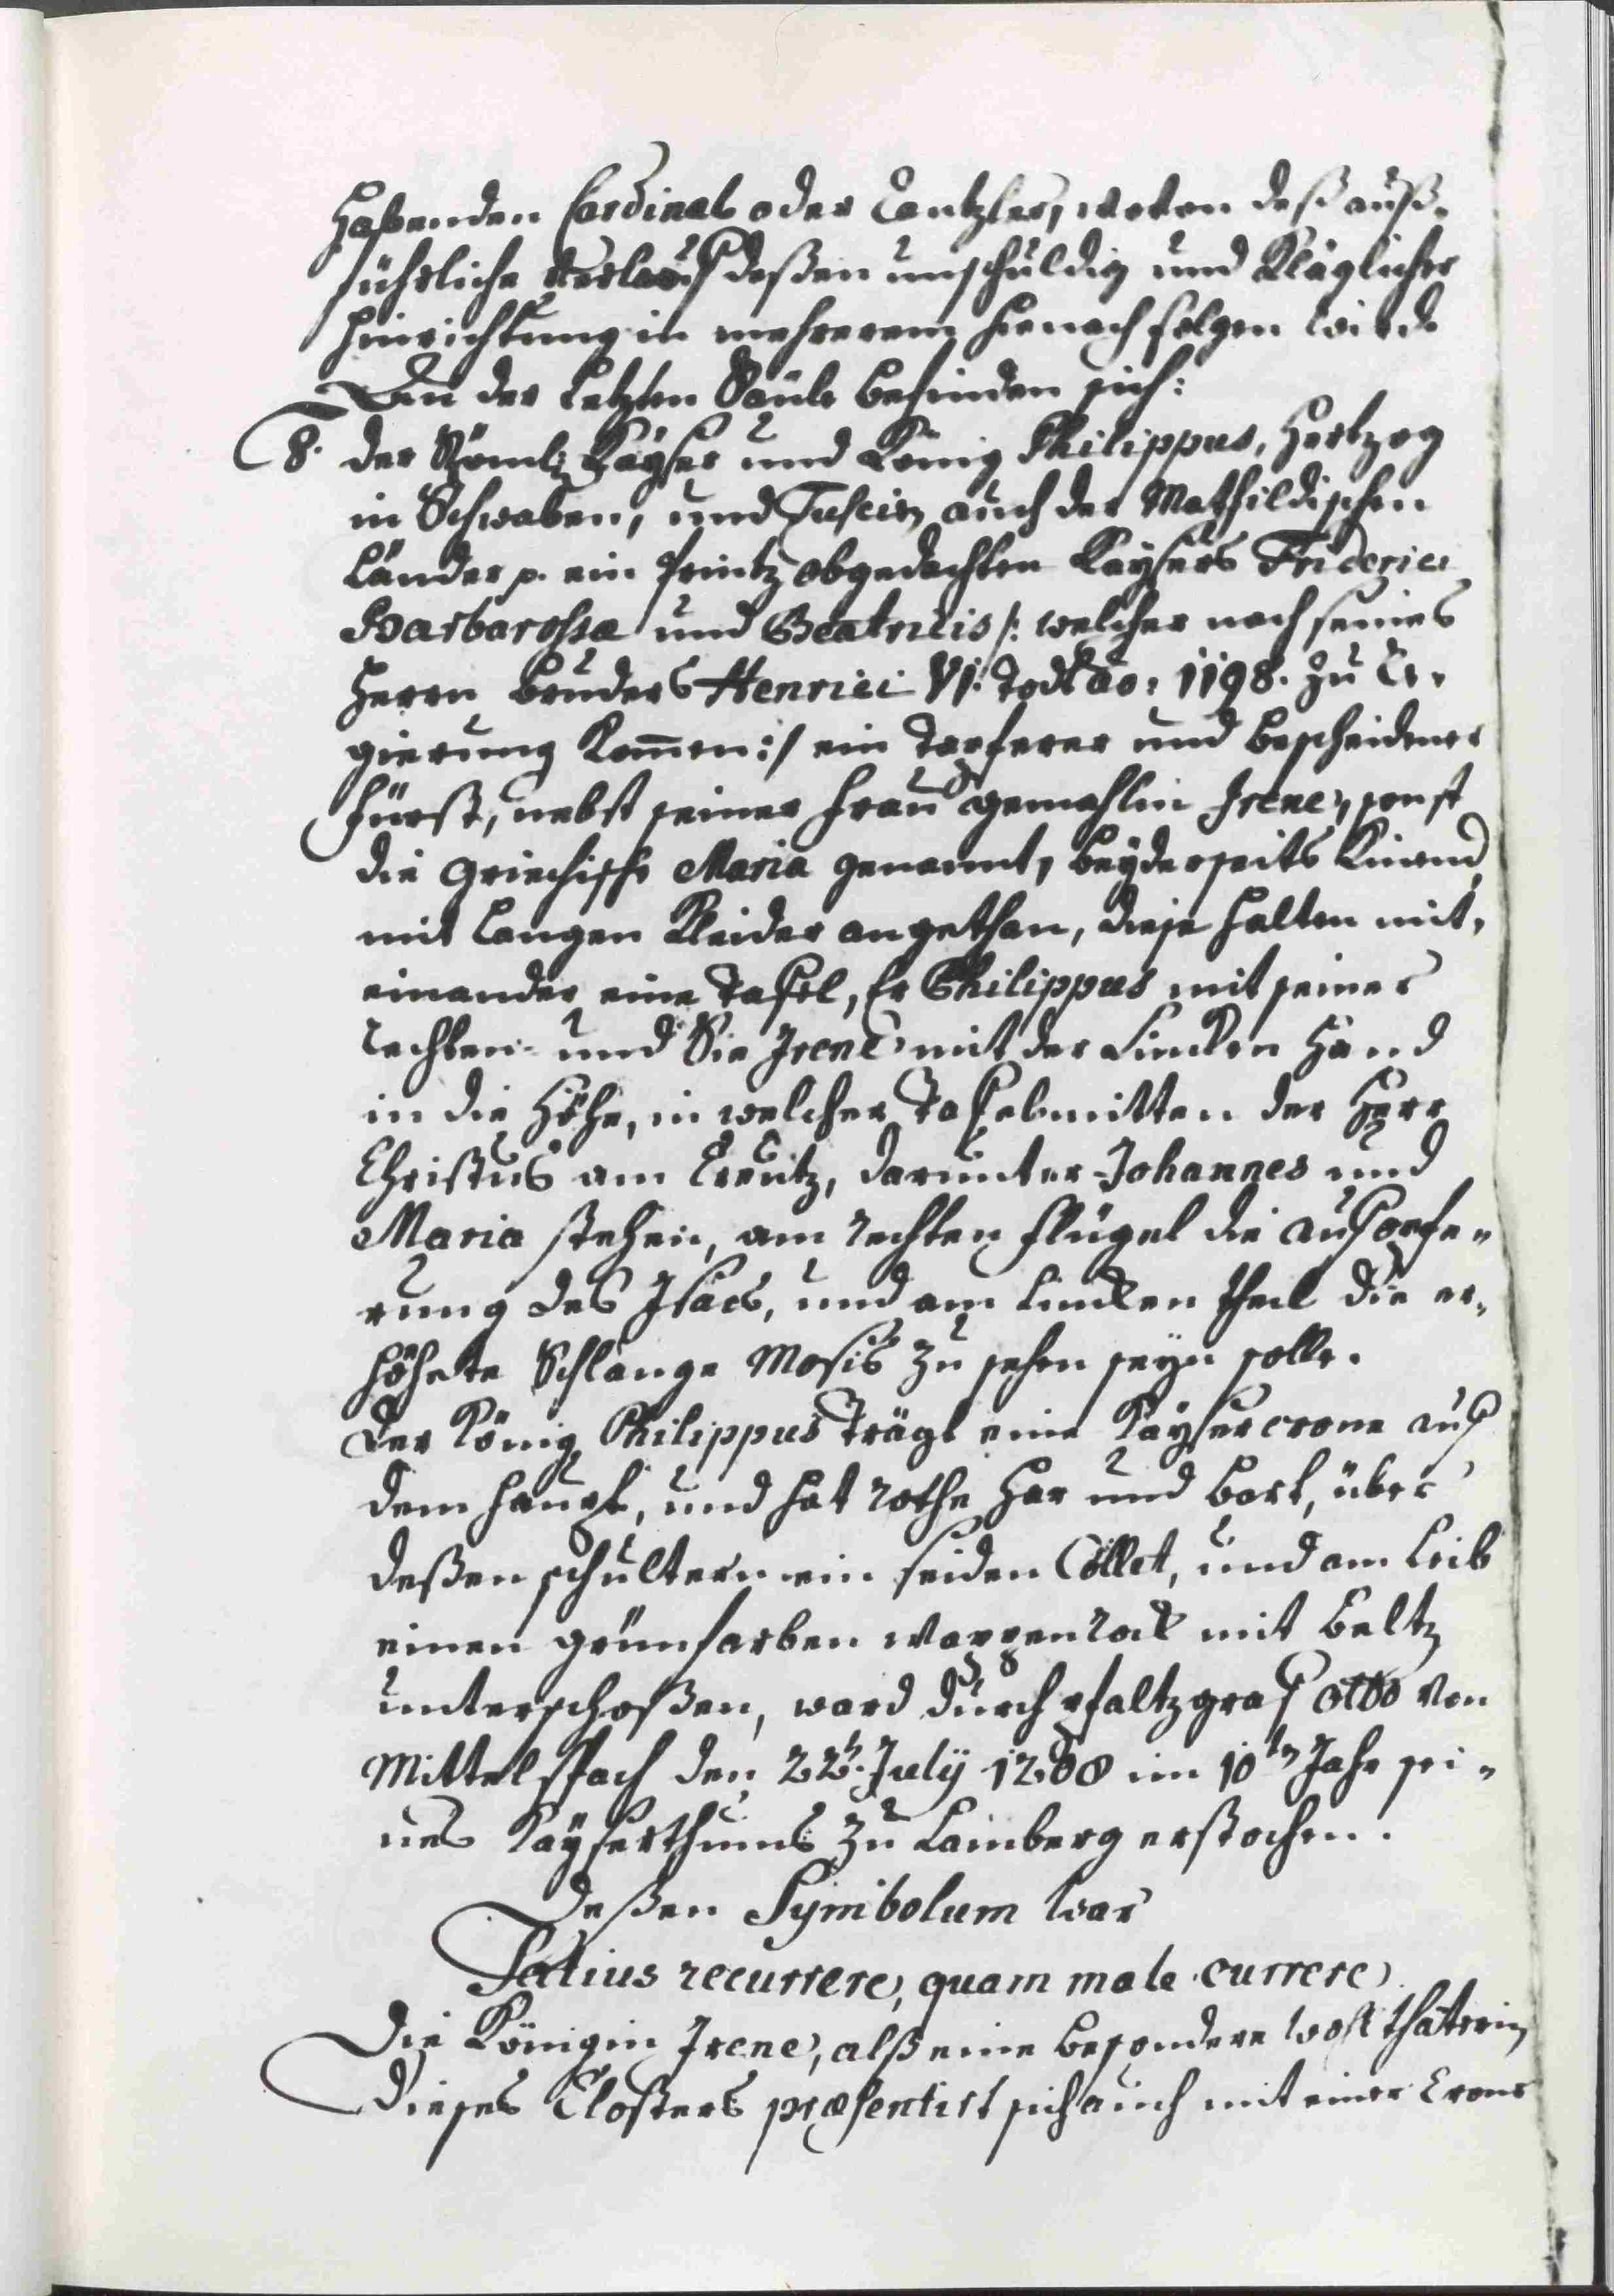 habenden Cardinal oder Cantzler, wovon deß auß-
führliche Verlauff deßen unschuldig und Kläglicher
hinrichtung in mehrerem hienach folgen wird.
An der Letzten Säule befinden sich:
8. der Röml: Kayser und König Philippus, Hertzog
in Schwaben, und Tuscien auch der Mathildischen
Länder p. ein Printz obgedachten Kaysers Friderici
Barbarossæ und Beatricis /: welcher nach seines
Herrn Bruders Henrici VI. Todt ao: 1198. zu Re-
gierung Kommen :/ ein Tapferer und bescheidener
Fürst, nebst seiner Frau gemahlin Irene, sonst
die Griechische Maria genannt, beyderseits Kniend
mit Langen Kleider angethan, diese halten mit-
einander eine Tafel, Er Philippus mit seiner
rechten- und Sie Irene mit der Lincken Hand
in die Höhe, in welcher Tafelmitten der Herr
Christus am Creutz, darunter Johannes und
Maria stehen, am rechten flügel die aufopfe-
rung des Isacs, und am Lincken theil die er-
höhete Schlange Mosis zu sehen seyn solle.
Der König Philippus Trägt eine Kaysercrone auf
dem haupt, und hat rothe Har und bart, über
deßen schultern ein seiden Cöllet, und am Leib
einen grünfarben Wappenrock mit beltz
unterschoßen, ward durch pfaltzgraf Otto von
Mittelspach den 22t. July 1208 im 10ten Jahr sei-
nes Kayserthums zu Bamberg erstochen.
Deßen Symbolum war
Satius recurrere, quam male currere.
Die Königin Irene, alß eine besondere wohlthäterin
Dieses Closters præsentirt sich auch mit einer Crone